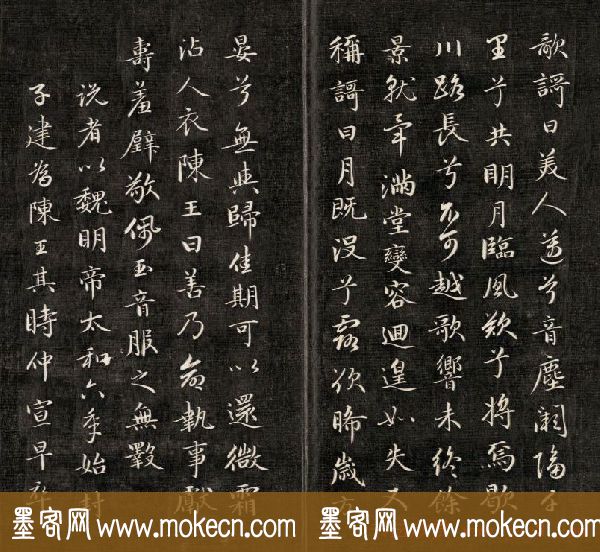 歌謌曰美人邁兮音塵闕隔千
里兮共明月臨風歎兮將焉歇
川路長兮不可越歌響未終餘
景就畢滿堂變容迴遑如失又
稱謌曰月既沒兮露欲晞歲方
晏兮無與歸佳期可以還微霜
沾人衣陳王曰善乃命執事獻
壽羞璧敬佩玉音服之無斁
説者以魏明帝太和六年始封
子建為陳王其時仲宣早卒
墨客网 www.mokecn.com 墨客网 www.mokecn.com